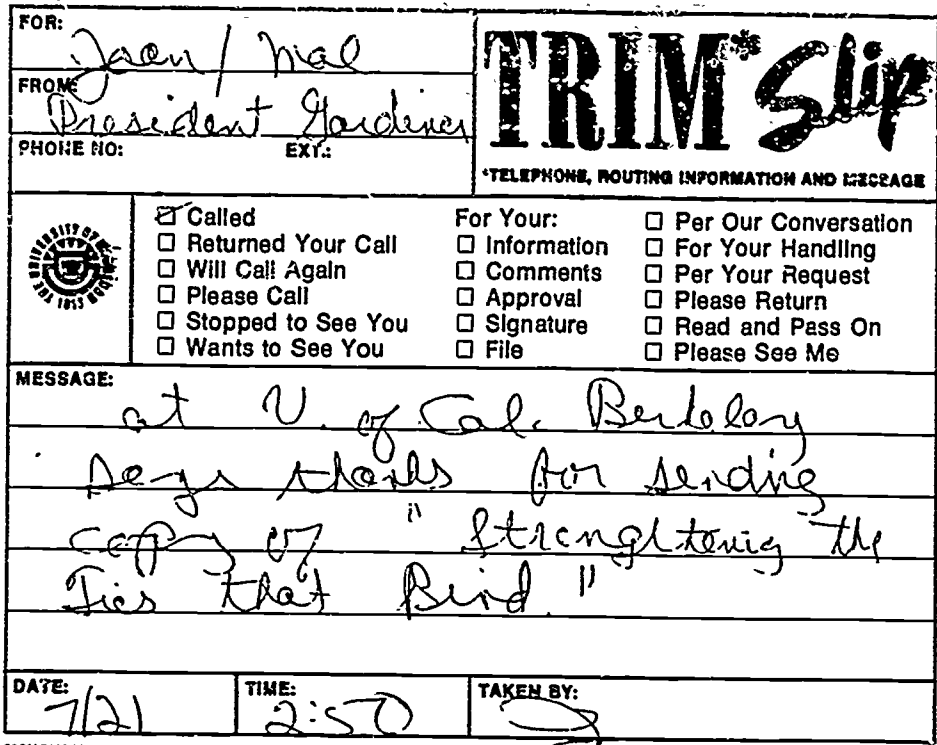 FOR: Joan / Mal
FROM: President Gardiner
PHONE NO: EXT.:
TRIM* Slip
*TELEPHONE, ROUTING INFORMATION AND MESSAGE
☑ Called
☐ Returned Your Call
☐ Will Call Again
☐ Please Call
☐ Stopped to See You
☐ Wants to See You
For Your:
☐ Information
☐ Comments
☐ Approval
☐ Signature
☐ File
☐ Per Our Conversation
☐ For Your Handling
☐ Per Your Request
☐ Please Return
☐ Read and Pass On
☐ Please See Me
MESSAGE:
at U. of Cal. Berkeley
says thanks for sending
copy of "Strenghtening the
Ties that Bind."
DATE: 7/21
TIME: 2:50
TAKEN BY: